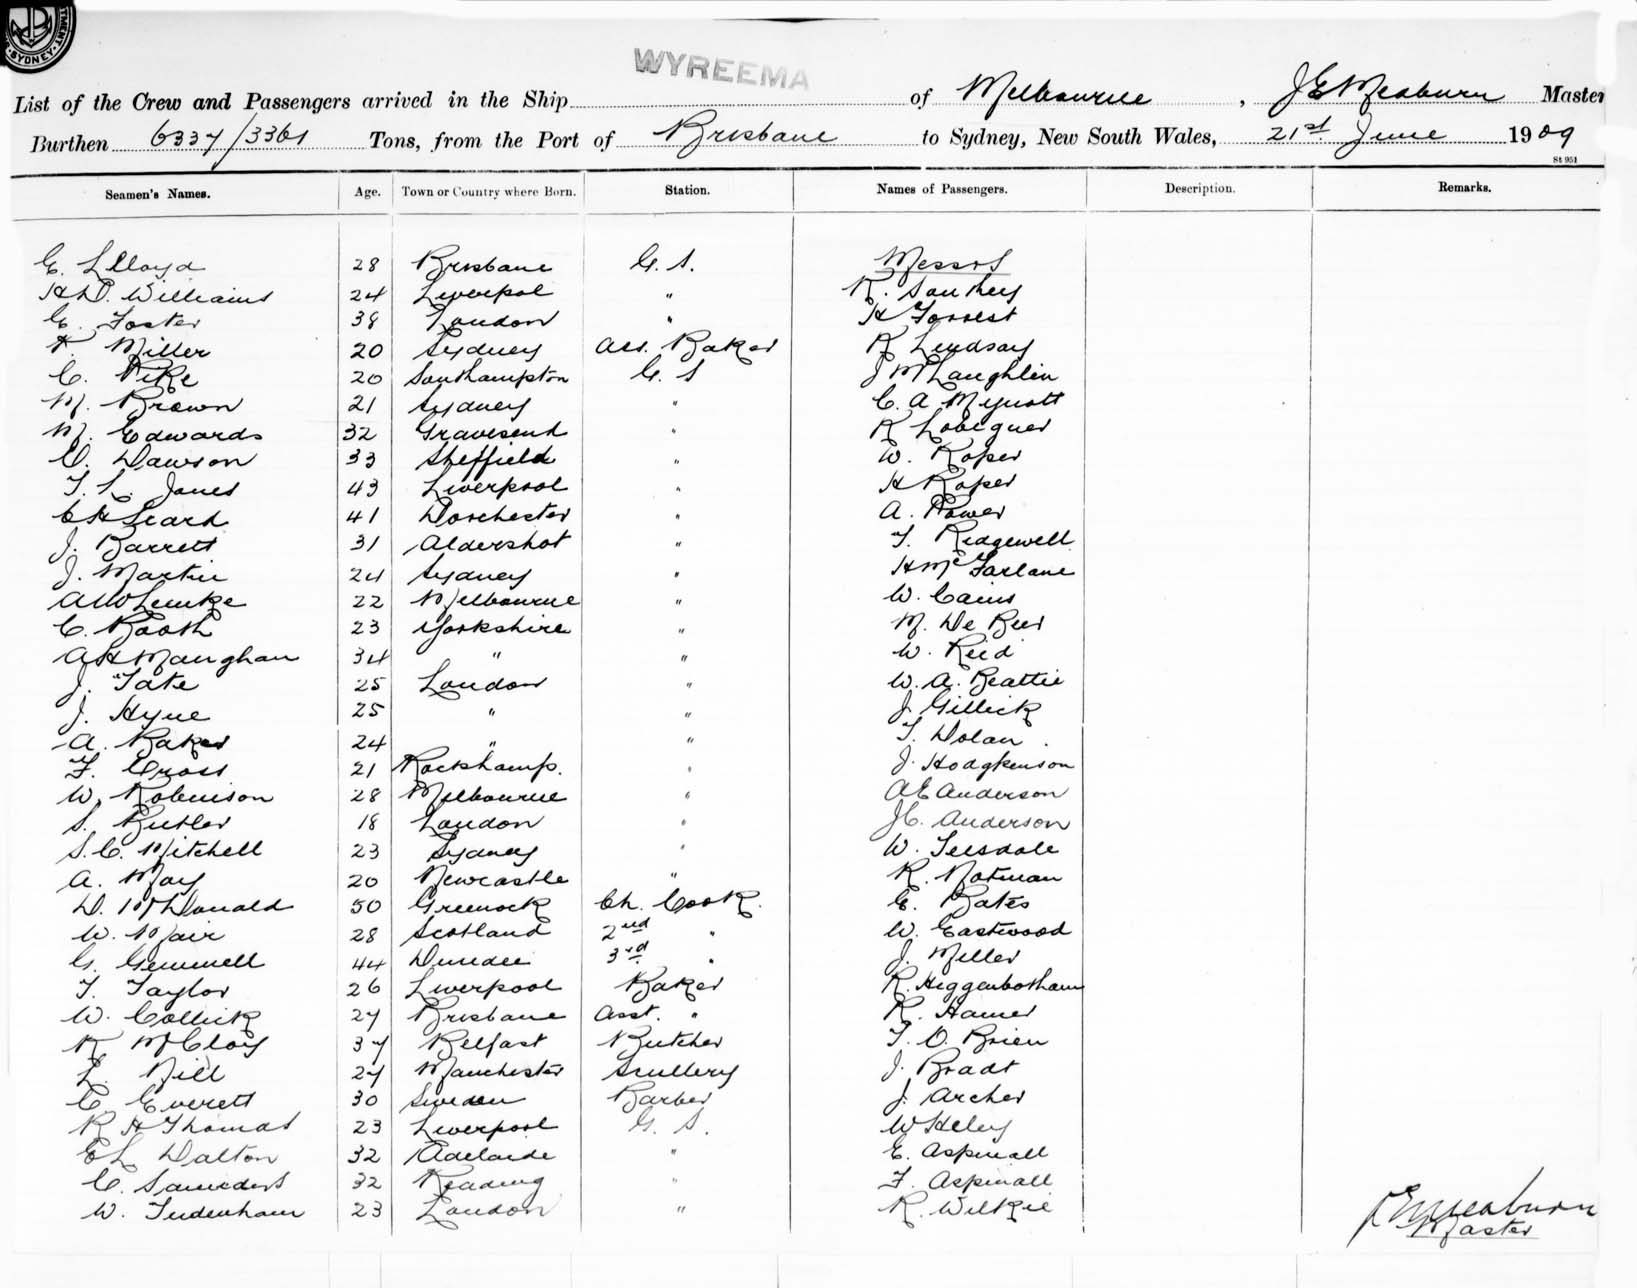 SYDNEY
WYREEMA
List of the Crew and Passengers arrived in the Ship of Melbourne, J E Meaburn Master
Burthen 6337/3361 Tons, from the Port of Brisbane to Sydney, New South Wales, 21st June 1909
St 951
Seamen's Names. Age. Town or Country where Born. Station. Names of Passengers. Description. Remarks.
E. Llloyd 28 Brisbane G. S. Messrs
H D. Williams 24 Liverpol " R. Southey
G. Foster 38 London " H Forrest
F. Miller 20 Sydney Ass. Baker R Lindsay
C. Pike 20 Southampton G. S J McLaughlin
M. Brown 21 Sydney " C. A Mynott
M. Edwards 32 Gravesend " R Lobigner
C. Dawson 33 Sheffield " W. Roper
T. L. Jones 43 Liverpool " H Roper
C H Leard 41 Dorchester " A. Power
J. Barrett 31 Aldershot " T. Ridgewell
J. Martin 24 Sydney " H McFarlane
A W Lemke 22 Melbourne " W. Cains
C. Booth 23 Yorkshire " M. De Beer
A H Maughan 34 " " W. Reid
J. Tate 25 London " W. A. Beattie
J. Hyne 25 " " J. Gillick
A. Baker 24 " " T. Dolan
F. Cross 21 Rockhamp. " J. Hodgkinson
W. Robinson 28 Melbourne " A E Anderson
S. Butler 18 London " J C. Anderson
S. C. Mitchell 23 Sydney " W. Teesdale
A. May 20 Newcastle " R. Notman
D. McDonald 50 Greenock Ch. Cook. E. Bates
W. Mair 28 Scotland 2nd " W. Eastwood
G. Gemmell 44 Dundee 3rd " J. Miller
T. Taylor 26 Liverpool Baker R. Higgenbotham
W. Collick 27 Brisbane Asst. " R. Hamer
R McCloy 37 Belfast Butcher T. O. Brien
L. Nill 27 Manchester Scullery J. Bradt
C. Everett 30 Sweden Barber J. Archer
R H Thomas 23 Liverpool G. S. W Heley
E L Dalton 32 Adelaide " E. Aspinall
C. Saunders 32 Reading " F. Aspinall
W. Tudenham 23 London " R. Wilkie
J E Meaburn
Master